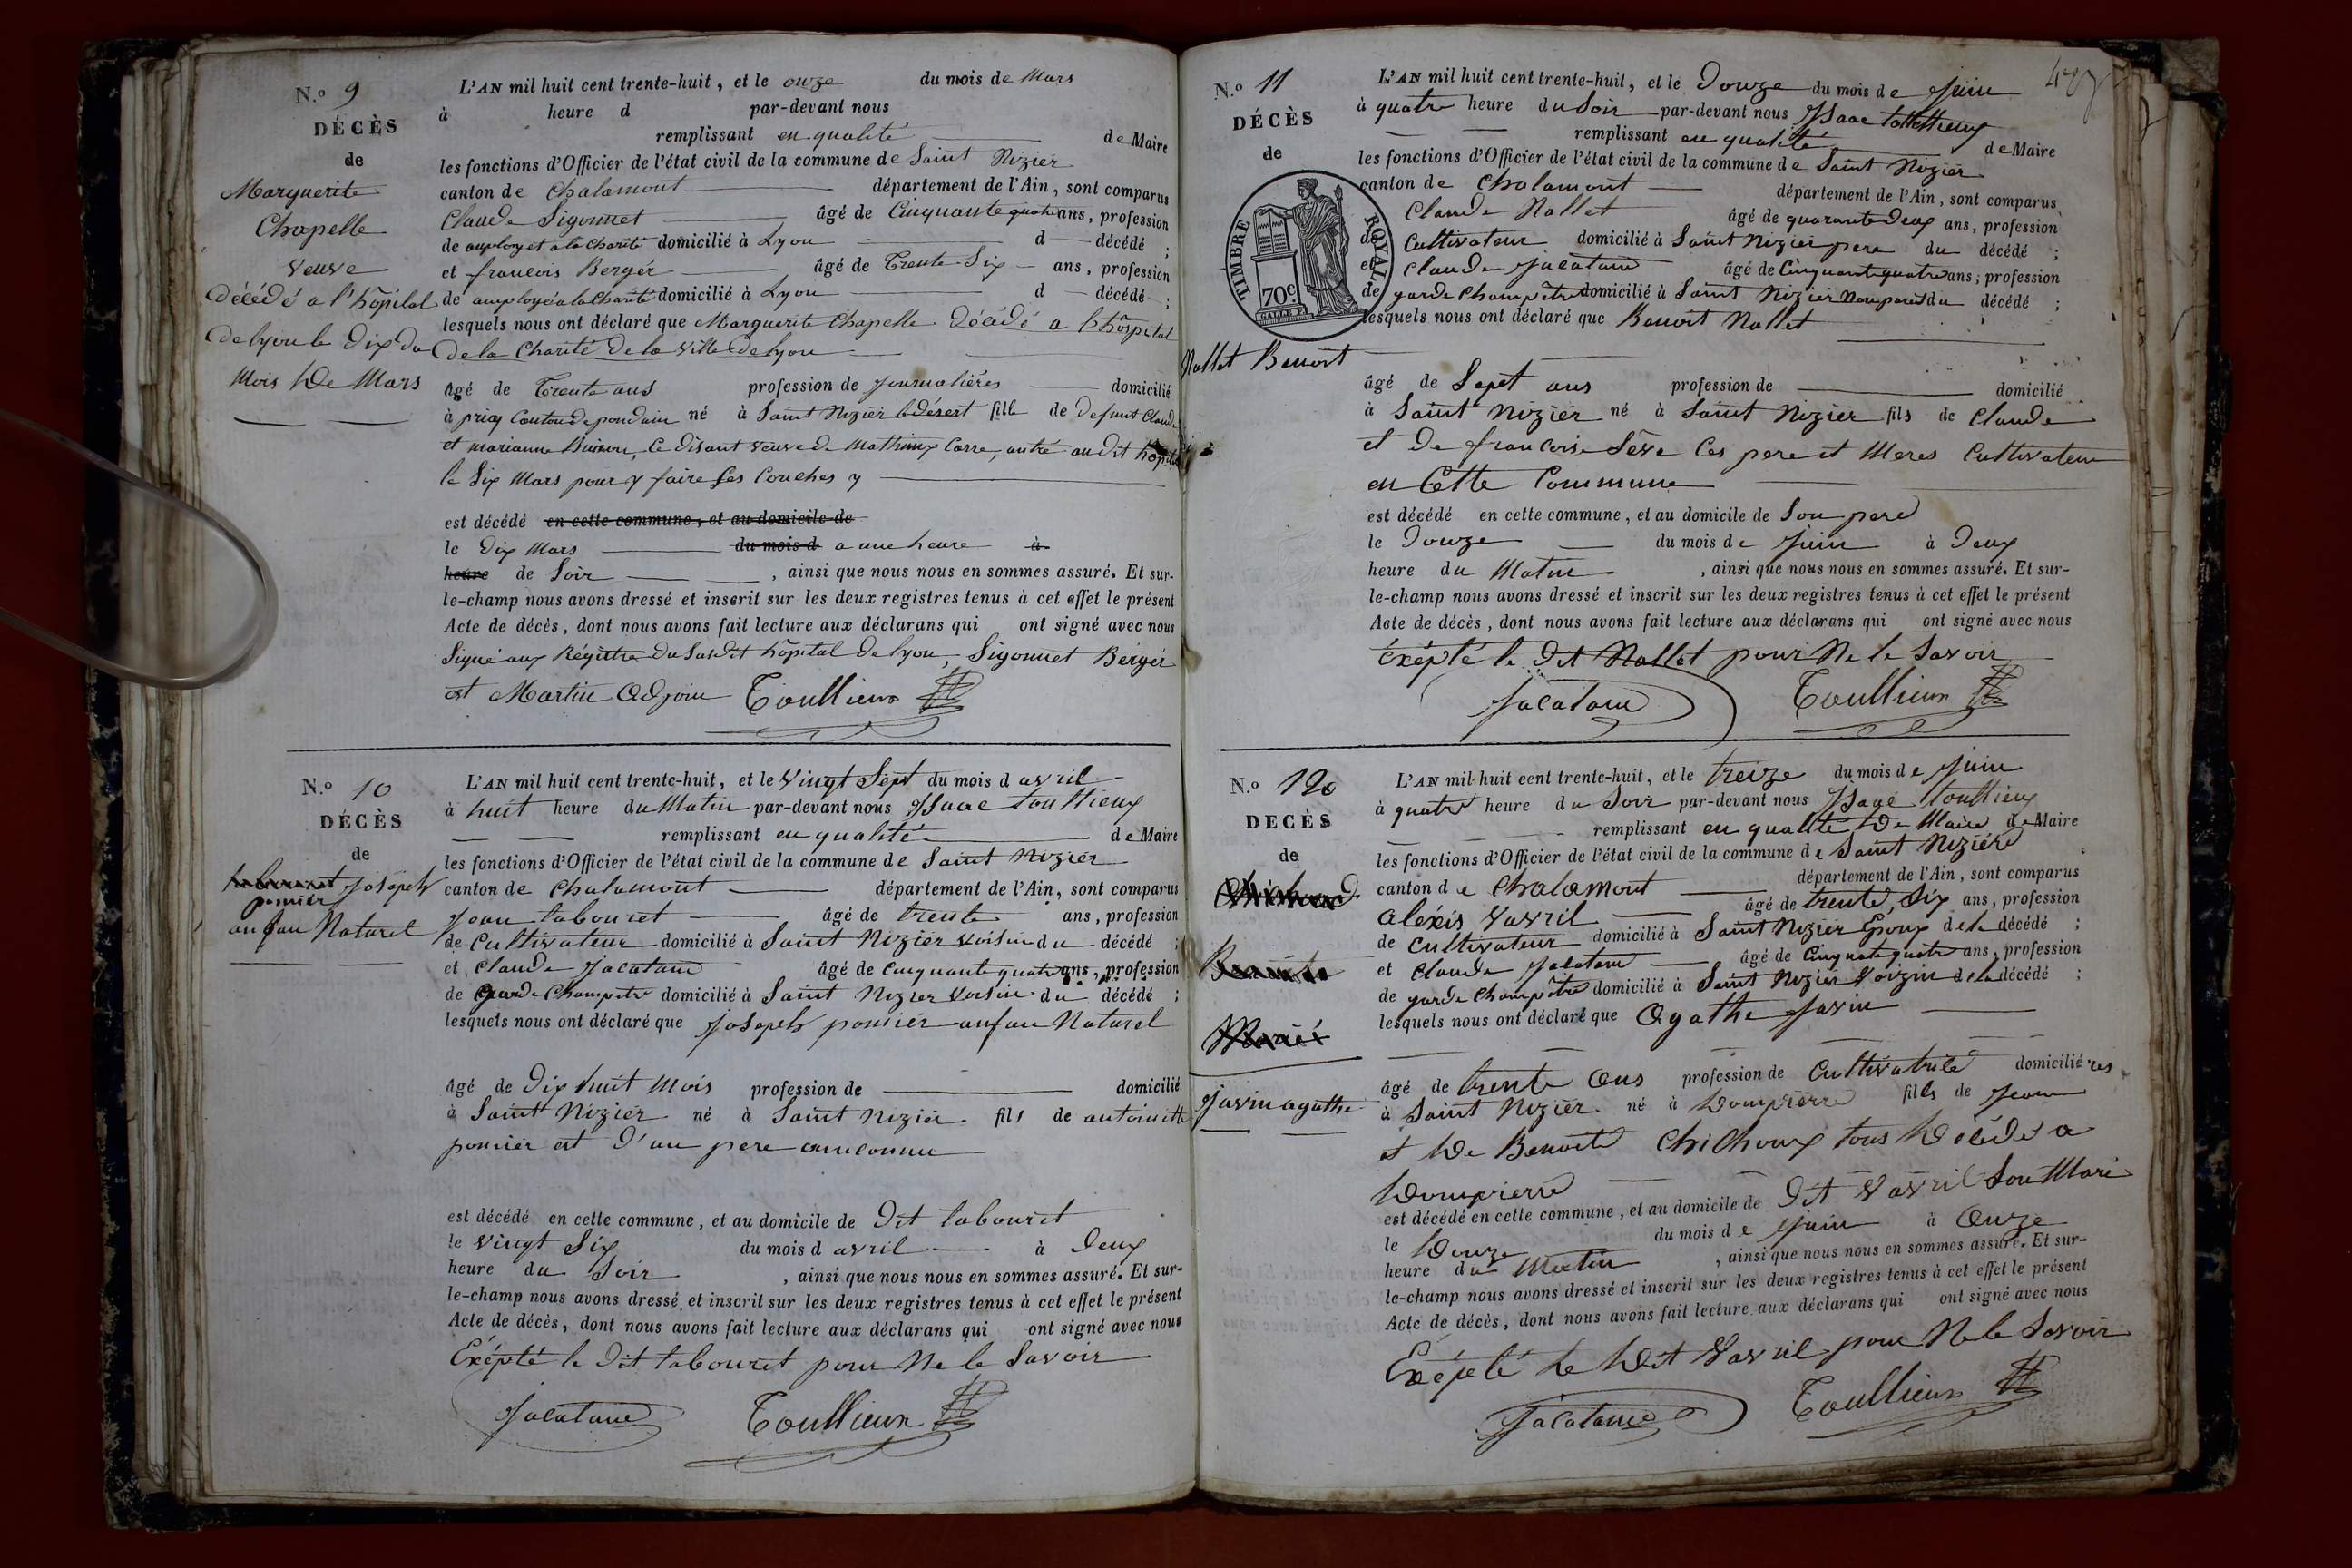 N.º 9
DÉCÈS
de
Marguerite
Chapelle
veuve
décédé a l'hôpital
de lyon le dix du
Mois de Mars
L'AN mil huit cent trente-huit, et le onze du mois de Mars
à heure d par-devant nous
remplissant en qualité de Maire
les fonctions d'Officier de l'état civil de la commune de Saint Nizier
canton de Chalamont département de l'Ain, sont comparus
Claude Sigonnet âgé de Cinquante quatre ans, profession
de employet a la Charité domicilié à Lyon d décédé ;
et francois Bergér âgé de Trente Six ans, profession
de employé a la Charité domicilié à Lyon d décédé ;
lesquels nous ont déclaré que Marguerite Chapelle Décédé a l'hôspital
De la Charité De la ville De lyon
âgé de Trente ans profession de Journalières domicilié
à priay Canton de pondain né à Saint Nizier le désert fille de Defunt Claude
et marianne Buisson, Ce disant veuve de Mathieux Carre, antré au dit hôpital
le Six Mars pour y faire Ses Couches y
est décédé en cette commune, et au domicile de
le Dix Mars du mois d a une heure à
heure de Soir , ainsi que nous nous en sommes assuré. Et sur-
le-champ nous avons dressé et inscrit sur les deux registres tenus à cet effet le présent
Acte de décès, dont nous avons fait lecture aux déclarans qui ont signé avec nous
Signé aux Régittre Du Susdit hôpital De lyon, Sigonnet Bergér
et Martin Adjoin Toullieux
N.º 10
DÉCÈS
de
tabouret joséph
ponsier
anfan Naturel
L'AN mil huit cent trente-huit, et le Vingt Sept du mois d avril
à huit heure du Matin par-devant nous Isaac Toullieux
remplissant en qualité de Maire
les fonctions d'Officier de l'état civil de la commune de Saint Nizier
canton de Chalamont département de l'Ain, sont comparus
Jean tabouret âgé de trente ans, profession
de Cultivateur domicilié à Saint Nizier Voisin du décédé ;
et Claude Jacatane âgé de Cinquante quatre ans, profession
de garde Champetre domicilié à Saint Nizier Voisin du décédé ;
lesquels nous ont déclaré que joseph ponsier anfan Naturel
âgé de Dix huit Mois profession de domicilié
à Saint Nizier né à Saint Nizier fils de antoinette
ponsier est d'un pere annconnu
est décédé en cette commune, et au domicile de Dit tabouret
le Vingt Six du mois d avril à Deux
heure du Soir , ainsi que nous nous en sommes assuré. Et sur-
le-champ nous avons dressé et inscrit sur les deux registres tenus à cet effet le présent
Acte de décès, dont nous avons fait lecture aux déclarans qui ont signé avec nous
Exépté le Dit tabouret pour Ne le Savoir
Jacatane Toullieux
N.º 11
DÉCÈS
de
TIMBRE ROYAL
70 c.
Nallet Benoit
L'AN mil huit cent trente-huit, et le Douze du mois de Juin
à quatre heure du Soir par-devant nous Isaac toullieux
remplissant en qualité de Maire
les fonctions d'Officier de l'état civil de la commune de Saint Nizier
canton de Chalamont département de l'Ain, sont comparus
Claude Nallet âgé de quarante Deux ans, profession
de Cultivateur domicilié à Saint Nizier pere du décédé ;
et Claude Jacatane âgé de Cinquante quatre ans ; profession
de garde Champêtre domicilié à Saint Nizier Non parent du décédé ;
lesquels nous ont déclaré que Benoit Nallet
âgé de Sept ans profession de domicilié
à Saint Nizier né à Saint Nizier fils de Claude
et De francoise Sève Ces pere et Meres Cultivateur
en Cette Commune
est décédé en cette commune, et au domicile de Son pere
le Douze du mois de Juin à Deux
heure du Matin , ainsi que nous nous en sommes assuré. Et sur-
le-champ nous avons dressé et inscrit sur les deux registres tenus à cet effet le présent
Acte de décès, dont nous avons fait lecture aux déclarans qui ont signé avec nous
Exépté le Dit Nallet pour Ne le Savoir
Jacatane Toullieux
N.º 12
DECÈS
de
Benoite
Marié
Javin agathe
L'AN mil huit cent trente-huit, et le treize du mois de Juin
à quatre heure du Soir par-devant nous Isaac toullieux
remplissant en qualité De Maire de Maire
les fonctions d'Officier de l'état civil de la commune de Saint Nizière
canton de Chalamont département de l'Ain, sont comparus
Alexis Vavril âgé de trente Six ans, profession
de Cultivateur domicilié à Saint Nizier Epoux de la décédé ;
et Claude Jacatane âgé de Cinquate quatre ans, profession
de garde Champêtre domicilié à Saint Nizier Voizin de la décédé ;
lesquels nous ont déclaré que Agathe Javin
âgé de trente Ans profession de Cultivatrice domicilié
à Saint Nizier né à Dompierre fille de Jean
et De Benoite Chichoux tous Décédé a
Dompierre
est décédé en cette commune, et au domicile de Dit Vavril Son Mari
le Douze du mois de Juin à Onze
heure du Matin , ainsi que nous nous en sommes assuré. Et sur-
le-champ nous avons dressé et inscrit sur les deux registres tenus à cet effet le présent
Acte de décès, dont nous avons fait lecture aux déclarans qui ont signé avec nous
Exépté Le Dit Vavril pour Ne le Savoir
Jacatane Toullieux